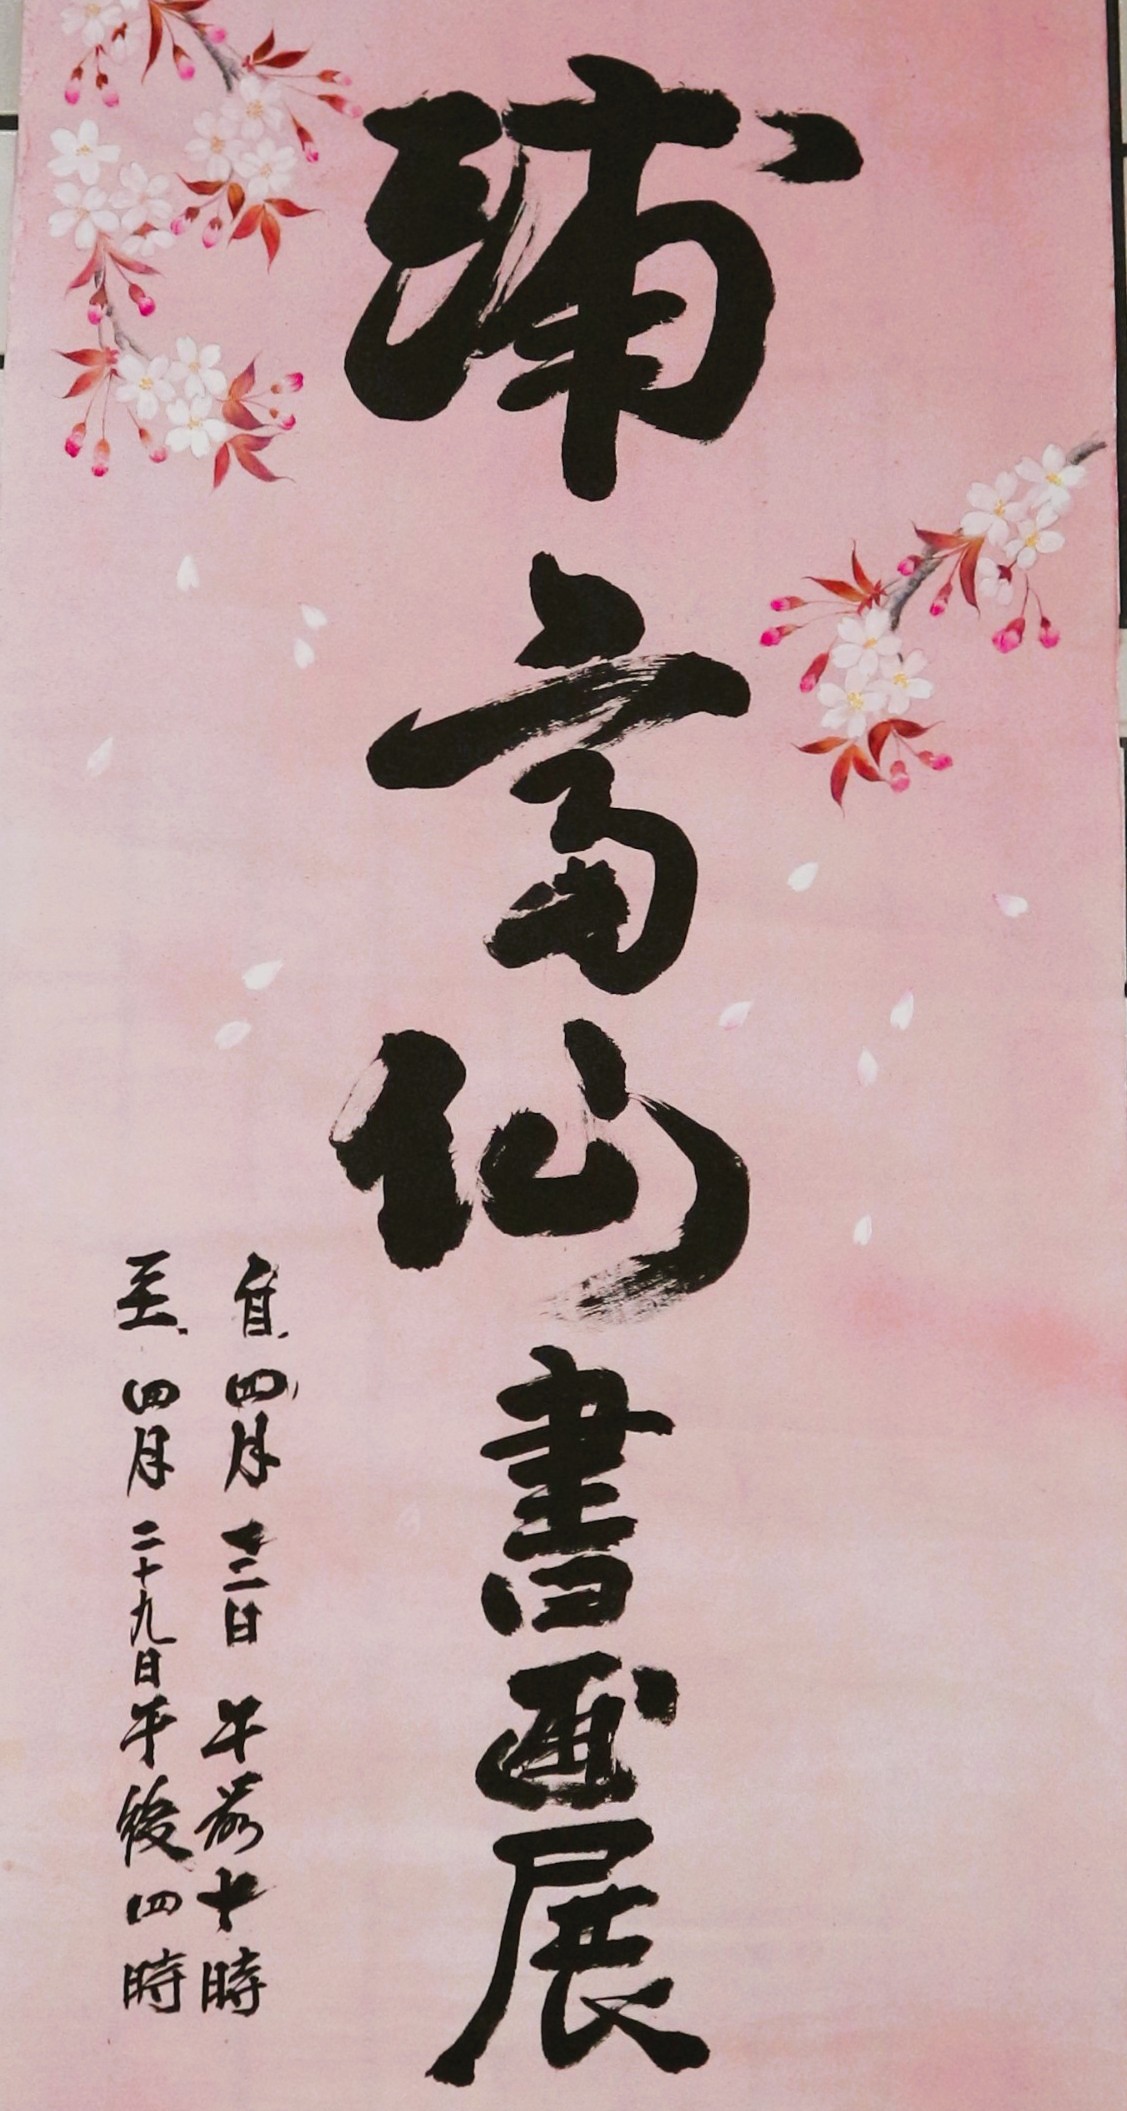 浦高仙書画展
自 四月 十二日 午前十時
至 四月 二十九日 午後四時